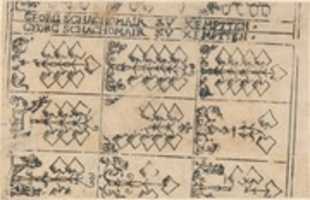 GEORG SCHACHOMAIR XV KEMPTEN.
GYORG SCHACHOMAIR XV KEMPTEN.